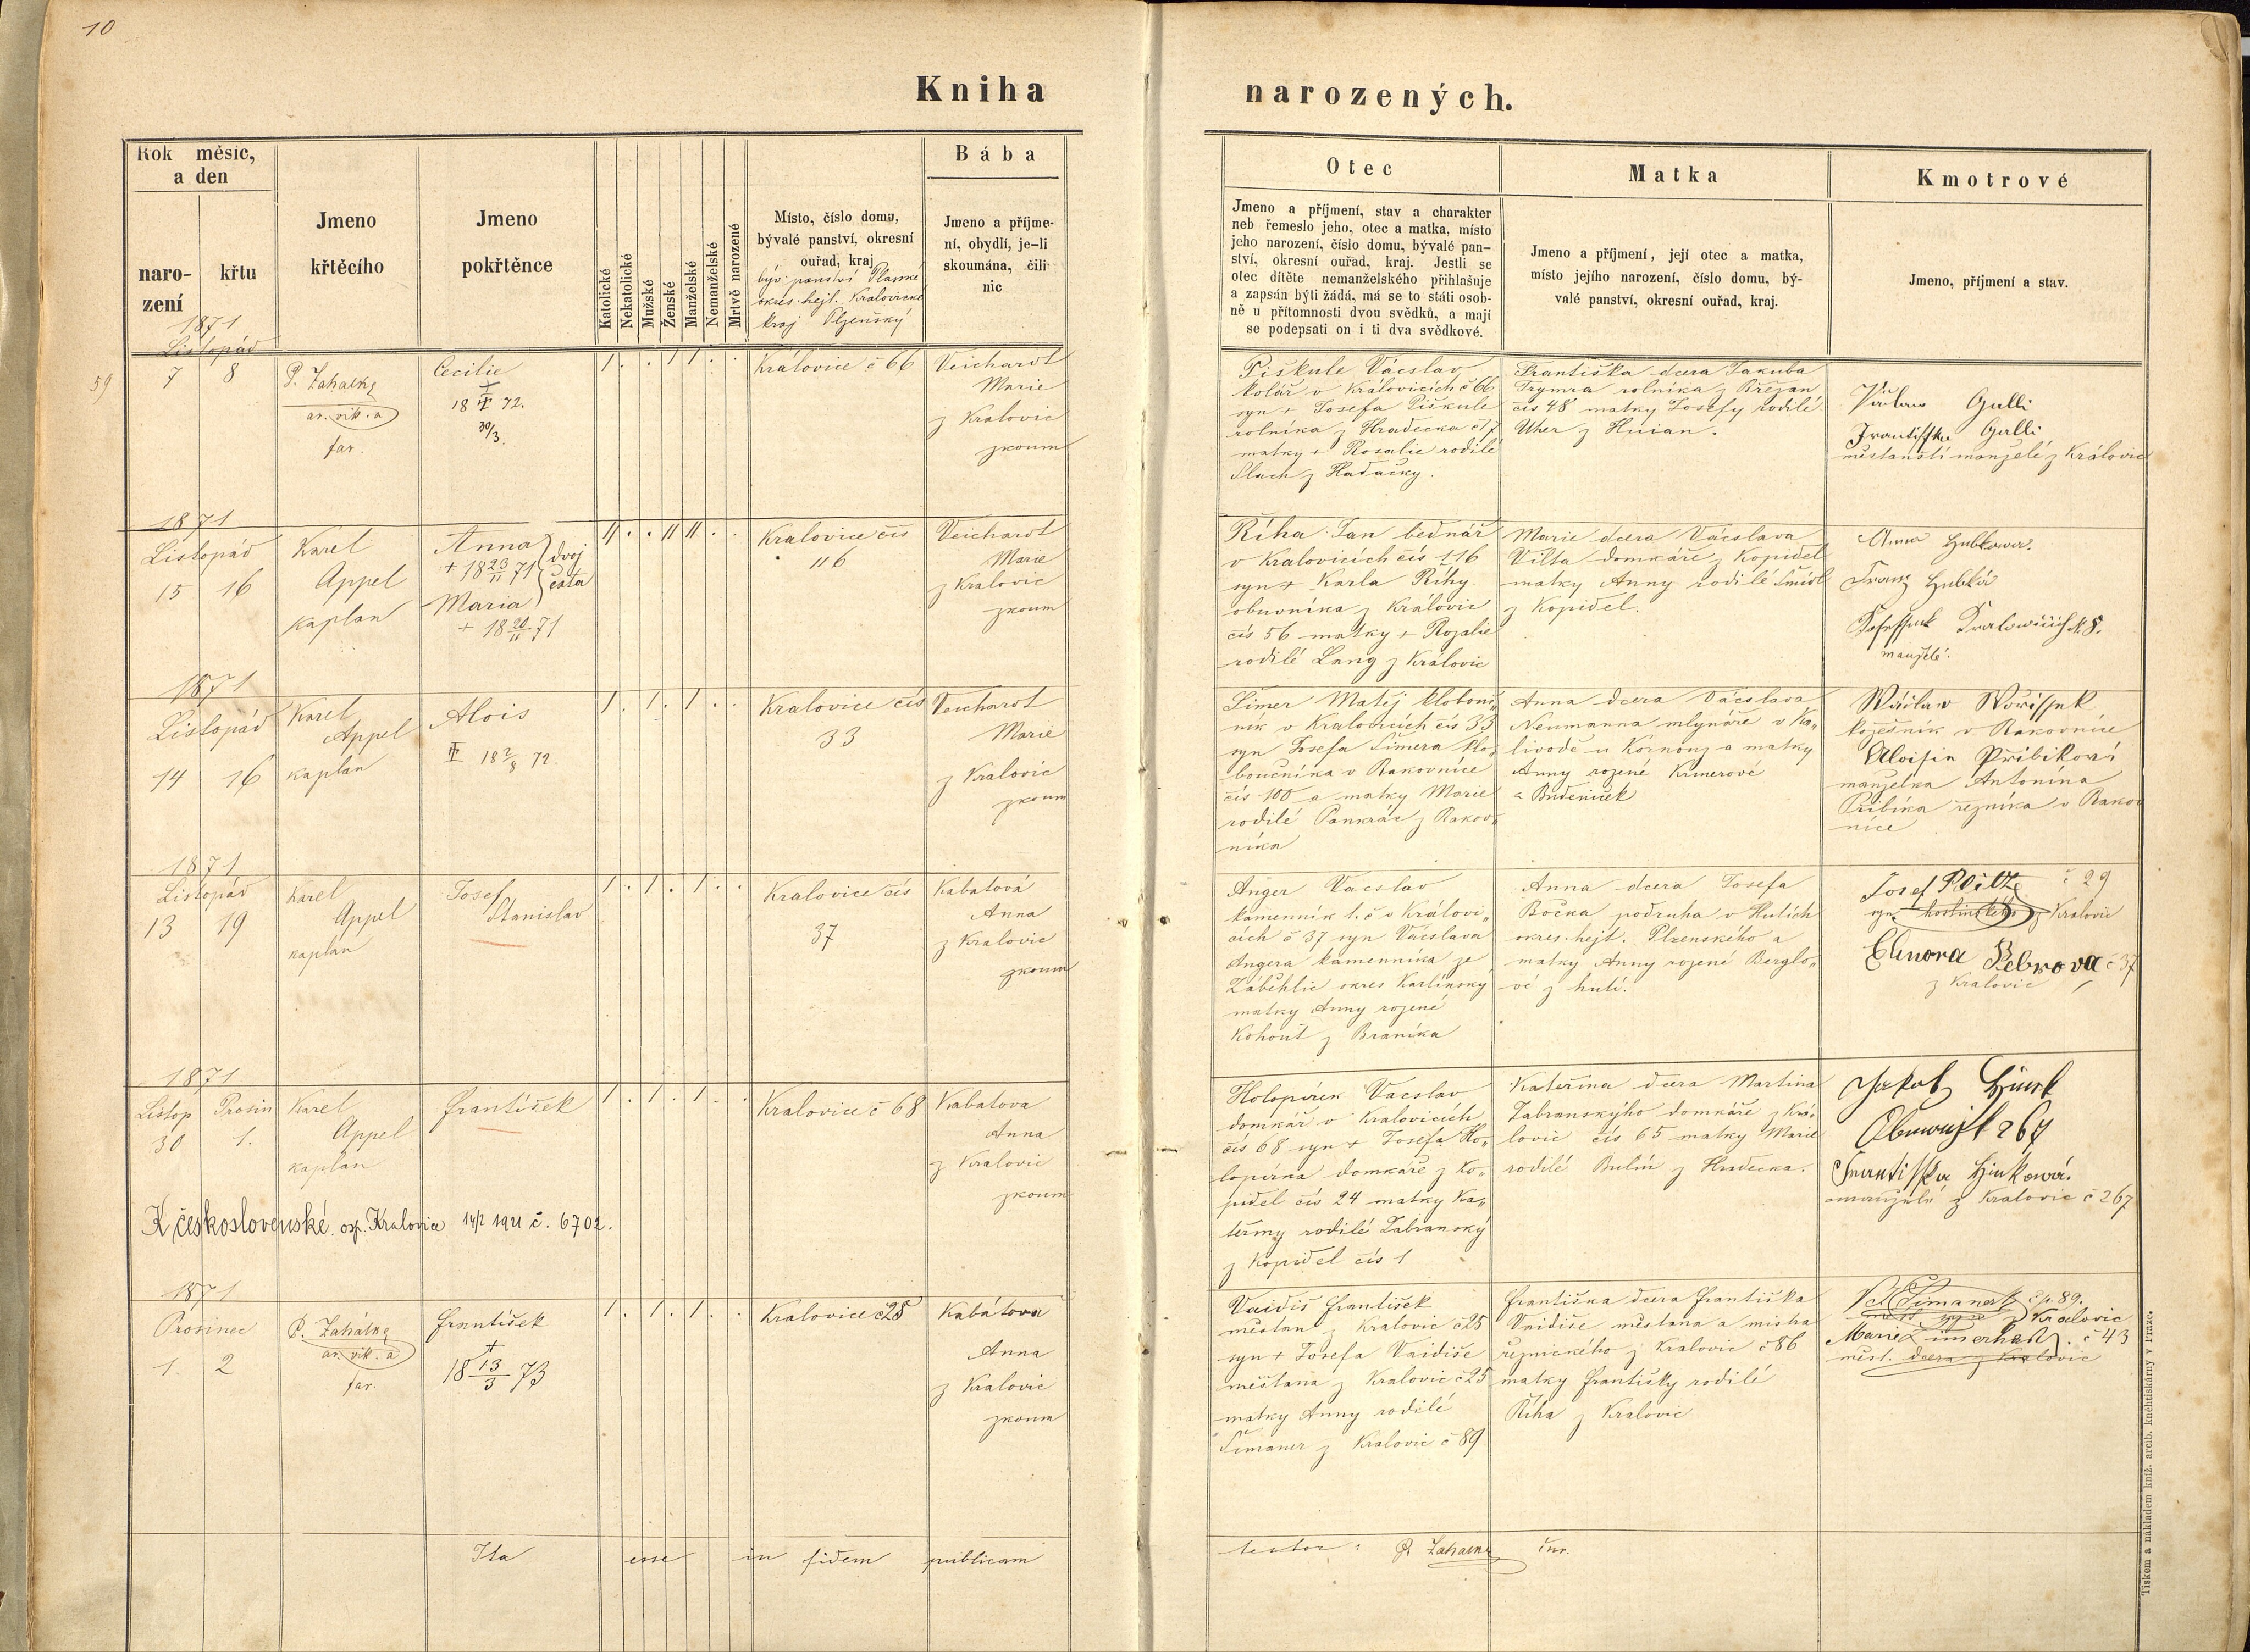 10
Kniha narozených.
Rok měsíc, a den
narození
křtu
Jmeno křtěcího
Jmeno pokřtěnce
Katolické
Nekatolické
Mužské
Ženské
Manželské
Nemanželské
Mrtvě narozené
Místo, číslo domu,
bývalé panství, okresní
ouřad, kraj
býv. panství Plasské
okres. hejt. Kralovické
kraj Plzeňský
Bába
Jmeno a příjme-
ní, obydlí, je-li
skoumána, čili
nic
Otec
Jmeno a příjmení, stav a charakter
neb řemeslo jeho, otec a matka, místo
jeho narození, číslo domu, bývalé pan-
ství, okresní ouřad, kraj. Jestli se
otec dítěte nemanželského přihlašuje
a zapsán býti žádá, má se to státi osob-
ně u přítomnosti dvou svědků, a mají
se podepsati on i ti dva svědkové.
Matka
Jmeno a příjmení, její otec a matka,
místo jejího narození, číslo domu, bý-
valé panství, okresní ouřad, kraj.
Kmotrové
Jmeno, příjmení a stav.
1871
Listopád
59
7 8
P. Zahálka
ar. vik. a
far.
Cecilie
18 72.
30/3.
1 . . 1 1 . .
Královice č 66
Veichardt
Marie
z Kralovic
zkoum
Piškule Václav
kolář v Královicích č 66
syn + Josefa Piškule
rolníka z Hradecka č 17
matky + Rosalie rodilé
Slach z Hadačky.
Františka dcera Jakuba
Trymra rolníka z Břežan
čís 48 matky Josefy rodilé
Uher z Hvian.
Václaw Galli
Frantisska Galli
městanští manzelé z Královic
1871
Listopád
15 16
Karel
Appel
kaplan
Anna
+ 18 23/11 71
Maria
+ 18 20/11 71
dvojčata
11 . . 11 11 . .
Kralovice čís
116
Veichardt
Marie
z Kralovic
zkoum
Říha Jan bednář
v Kralovicích čís 116
syn + Karla Říhy
obuvníka z Královic
čís 56 matky + Rozalie
rodilé Lang z Královic
Marie dcera Václava
Vilta domkáře z Kopidel
matky Anny rodilé
z Kopidel.
Anna Hubkowa.
Franz Hubka
manželé.
1871
Listopád
14 16
Karel
Appel
kaplan
Alois
18 2/8 72.
1 . 1 . 1 . .
Kralovice čís
33
Veichardt
Marie
z Kralovic
zkoum
Šimer Matěj klobouč
ník v Kralovicích čís 33
syn Josefa Šimera klo„
boučníka v Rakovníce
čís 100 a matky Marie
rodilé Pankrác z Rakov„
níka
Anna dcera Václava
Neumanna mlynáře v Ka„
livodě u Kornouz a matky
Anny rozené Krmerové
z Budeniček
Wáclaw Woříssek
kožešník v Rakovníce
Aloisia Přibíková
manželka Antonína
Přibíka řezníka v Rakov
níce
1871
Listopád
13 19
Karel
Appel
kaplan
Josef
Stanislav
1 . 1 . 1 . .
Kralovice čís
37
Kabatová
Anna
z Kralovic
zkoum
Anger Vacslav
kamenník t. č v Královi„
cích č 37 syn Václava
Angera kamenníka ze
Záběhlic okres Karlínský
matky Anny rozené
Kohout z Braníka
Anna dcera Josefa
Bočka podruha v Hutích
okres. hejt. Plzenského a
matky Anny rozené Berglo„
vé z hutí.
Josef Peltz č 29
syn hostinského z Kralovic
Elenora Pebrova č 37
z Kralovic
1871
Listop Prosin
30 1.
Karel
Appel
kaplan
František
1 . 1 . 1 . .
Kralovice č 68
Kabatova
Anna
z Kralovic
zkoum
Holopírek Vacslav
domkář v Kralovicích
čís 68 syn + Josefa Ho„
lopírka domkáře z Ko„
pidel čís 24 matky Ka„
teřiny rodilé Zabranský
z Kopidel čís 1
Kateřina dcera Martina
Zabranskýho domkáře z Krá„
lovic čís 65 matky Marie
rodilé Bulín z Hradecka.
Jakob Hinek
Obuwnjk 267
Frantisska Hinkowá.
manzelé z Kralovic č 267
K československé. osp. Kralovice 14/2 1921 č. 6702.
1871
Prosinec
1. 2
P. Zahálka
ar. vik. a
far.
František
+
18 13/3 73
1 . 1 . 1 . .
Kralovice č 25
Kabátova
Anna
z Kralovic
zkoum
Vaidiš František
městan z Kralovic č 25
syn + Josefa Vaidiše
měštana z Kralovic č 25
matky Anny rodilé
Šimaner z Kralovic č 89
Františka dcera Františka
Vaidiše městana a mistra
řeznického z Kralovic č 86
matky Františky rodilé
Říha z Kralovic
Šimanerk čp. 89.
z Kralovic
Marie Limerhett. č 43
měst. dcera z Kralovic
Ita esse in fidem publicam testor: P. Zahálka far.
Tiskem a nákladem kníž. arcib. knihtiskárny v Praze.